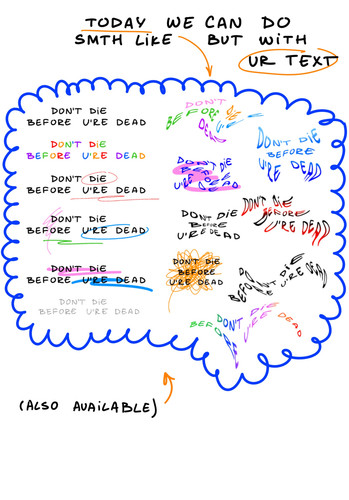 TODAY WE CAN DO
SMTH LIKE BUT WITH
UR TEXT
DON'T DIE
BEFORE U'RE DEAD
DON'T DIE
BEFORE U'RE DEAD
DON'T DIE
BEFORE U'RE DEAD
DON'T DIE
BEFORE U'RE DEAD
DON'T DIE
BEFORE U'RE DEAD
DON'T DIE
BEFORE U'RE DEAD
DON'T
DIE
BEFORE
U'RE
DEAD
DON'T DIE
BEFORE
U'RE DEAD
DON'T DIE
BEFORE
U'RE DEAD
DON'T DIE
BEFORE
U'RE DEAD
DON'T DIE
BEFORE
U'RE DEAD
DON'T DIE
BEFORE
U'RE DEAD
DON'T DIE
BEFORE
U'RE DEAD
DON'T DIE
BEFORE U'RE DEAD
(ALSO AVAILABLE)